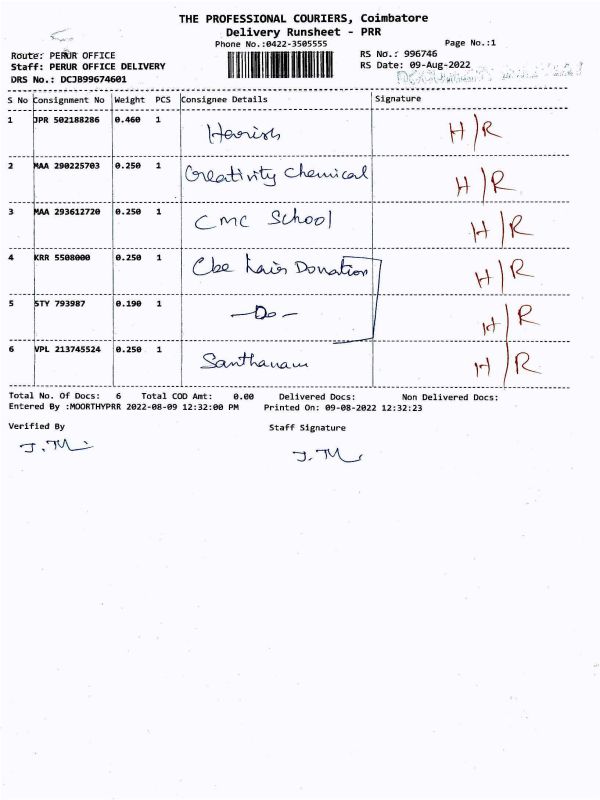 THE PROFESSIONAL COURIERS, Coimbatore
Delivery Runsheet - PRR
Phone No.:0422-3505555 Page No.:1
Route: PERUR OFFICE RS No.: 996746
Staff: PERUR OFFICE DELIVERY RS Date: 09-Aug-2022
DRS No.: DCJB99674601
S No Consignment No Weight PCS Consignee Details Signature
1 JPR 502188286 0.460 1 Harish H/R
2 MAA 290225703 0.250 1 Creativity Chemical H/R
3 MAA 293612720 0.250 1 CMC School H/R
4 KRR 5508000 0.250 1 Cbe hair Donation H/R
5 STY 793987 0.190 1 -Do- H/R
6 VPL 213745524 0.250 1 Santhanam H/R
Total No. Of Docs: 6 Total COD Amt: 0.00 Delivered Docs: Non Delivered Docs:
Entered By :MOORTHYPRR 2022-08-09 12:32:00 PM Printed On: 09-08-2022 12:32:23
Verified By Staff Signature